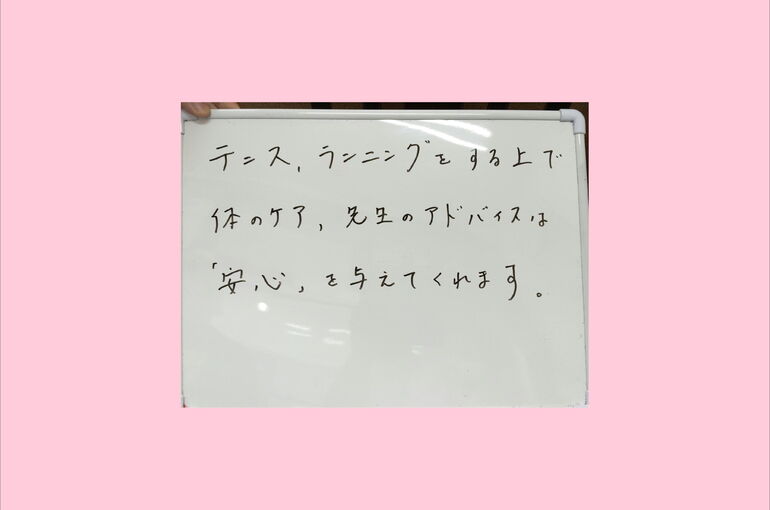 テニス、ランニングをする上で
体のケア、先生のアドバイスは
「安心」を与えてくれます。